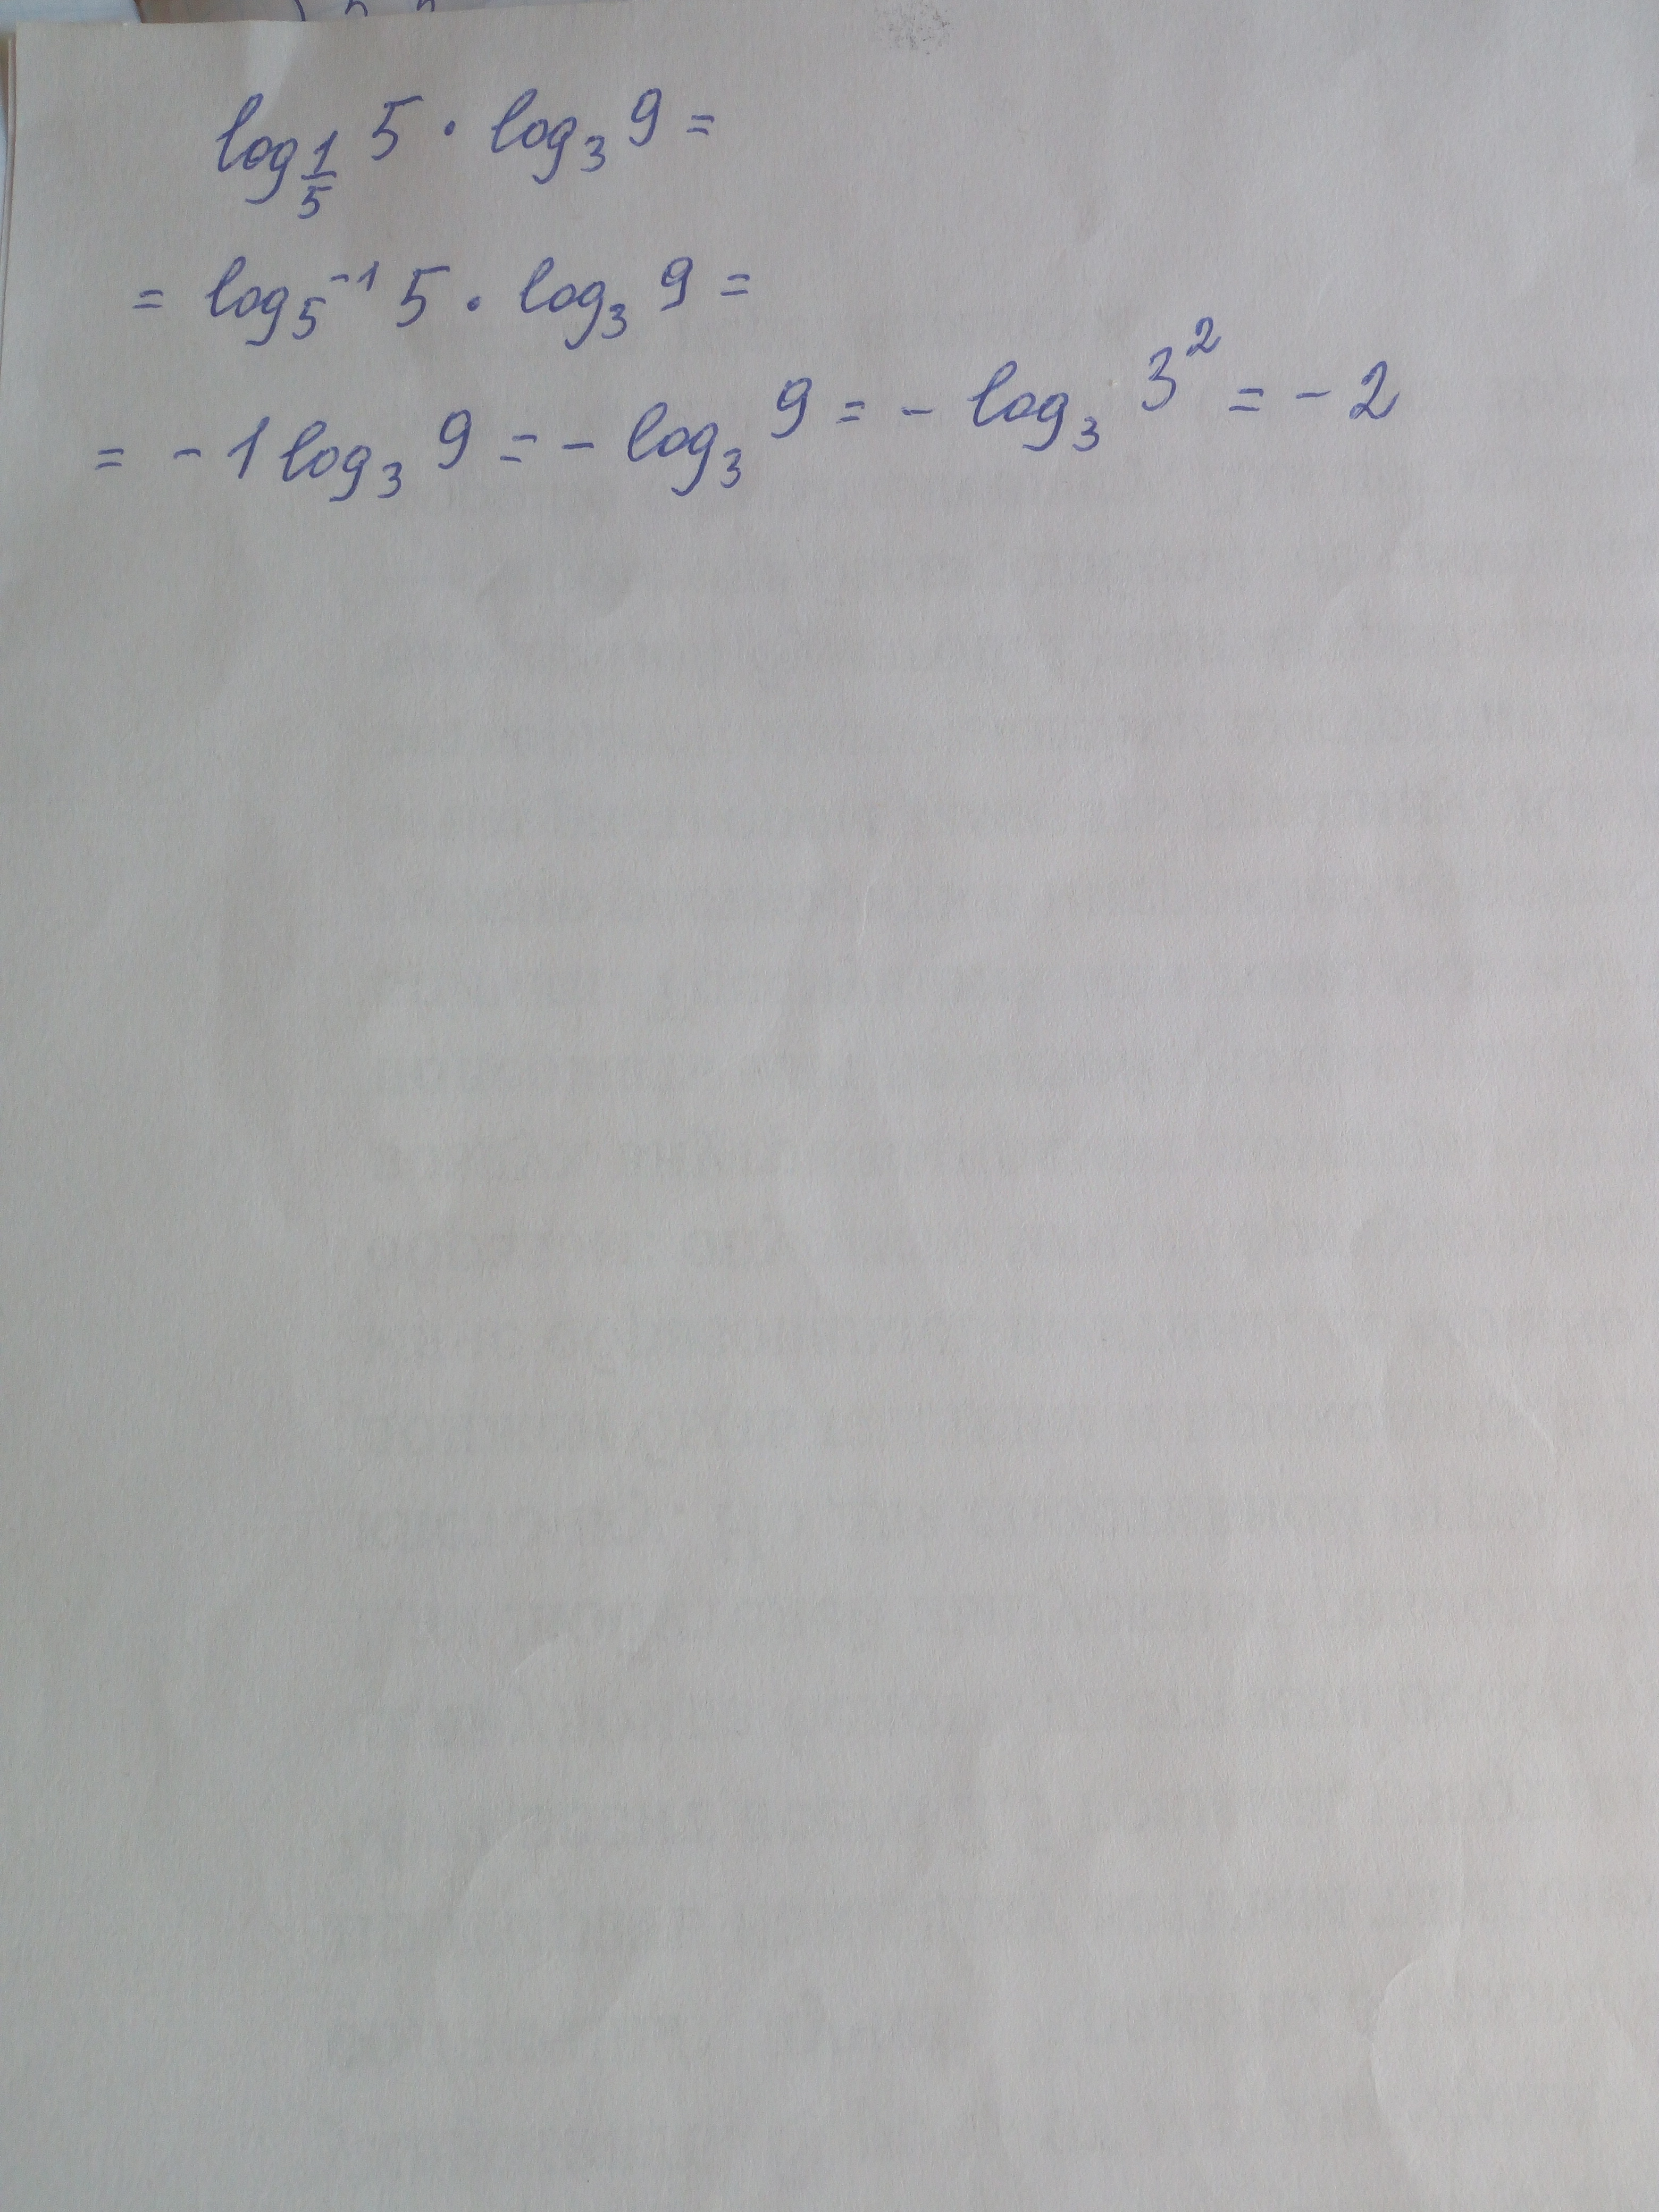 log_{1/5} 5 · log_3 9 =
= log_{5^{-1}} 5 · log_3 9 =
= - 1 log_3 9 = - log_3 9 = - log_3 3^2 = - 2